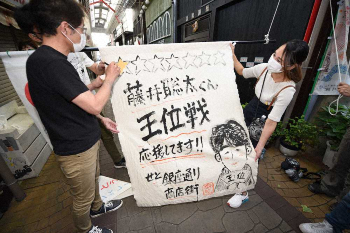 藤井聡太くん
王位戦
応援してます!!
せと銀座通り
商店街
王位